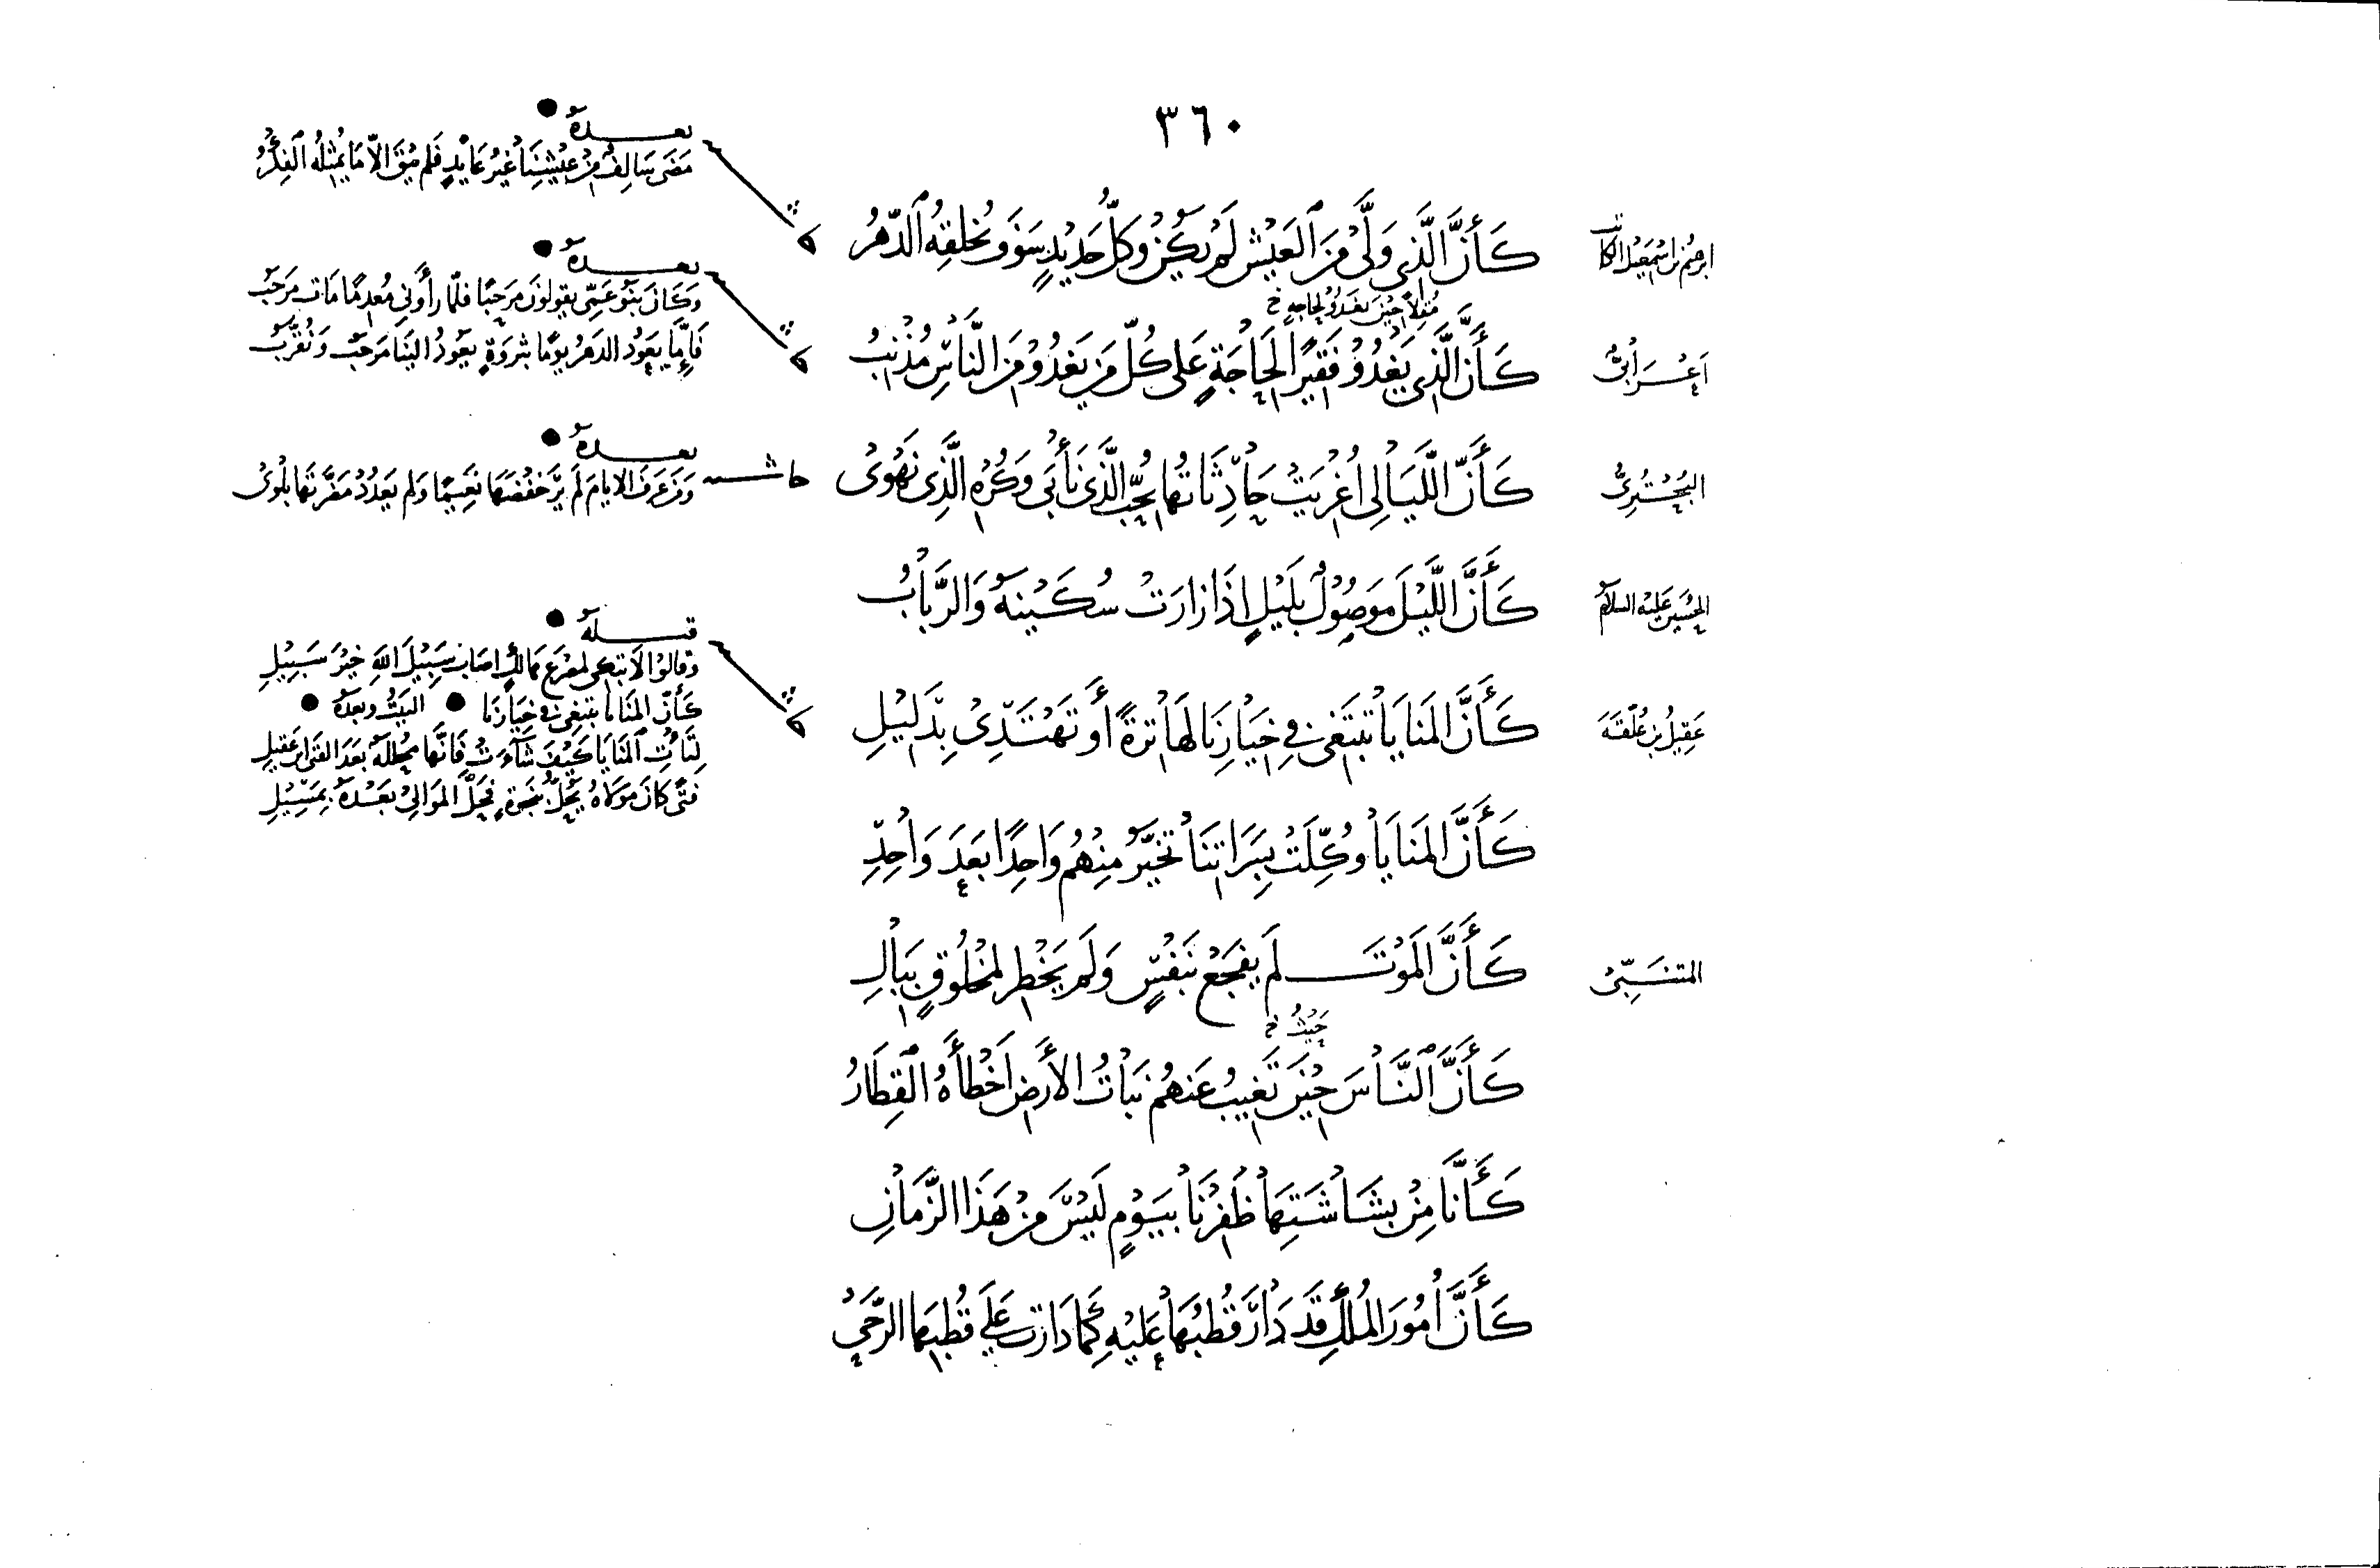 ٣٦٠
ابرهيم بن اسمعيل الكاتب
كَأَنَّ الَّذِي وَلَّى مِنَ الْعَيْشِ لَمْ يَكُنْ وَكُلُّ جَدِيْدٍ سَوْفَ تُخْلِقُهُ الدَّهْرُ
بعده
مَضَى سَالِفٌ مِنْ عَيْشِنَا غَيْرُ عَايْدٍ فَلَم يَبْقَ الاّ مَا يُمَثِلُهُ الفِكْرُ
مُقِلاًّ حِيْنَ يَغْدُو لِحَاجَةٍ خ
اَعْرَابِيٌّ
كَأَنَّ الَّذِي يَغْدُوْ فَقِيْرًا لِحَاجَةٍ عَلَى كُلِّ مَنْ يَغْدُوْ مِنَ النَّاسِ مُذْنِبُ
بعده
وَكَانَ بَنُو عَمِّي يَقُولُونَ مَرْحَبًا فَلَمّا رَأَوْنِي مُعْدِمًا مَاتَ مَرْحَبُ
فَإِمَّا يَعُوْدُ الدَهْرُ يَوْمًا بِثَرْوَةٍ يَعُوْدُ الَيْنَا مَرْحَبٌ وَنُقَرَّبُ
البُحْتُرِيُّ
كَأَنَّ اللَّيَالِي اُغْرِيَتْ حَادِثَاتُهَا بِحُبِّ الَّذِي نَأْبَى وَكُرْهِ الَّذِي نَهْوَى
حاشـ
بعده
وَمَنْ عَرَفَ الايَامَ لَم يَرَ خَفْضَهَا نَعِيْمًا وَلَم يَعْدُدْ مَضَرَّتَهَا بَلْوَى
الحُسَيْن عَلَيْهِ السلام
كَأَنَّ اللَّيْلَ مَوْصُوْلٌ بِلَيْلٍ اِذَا زَارَتْ سُكَيْنَةُ وَالرَّبَابُ
عَقِيْلُ بن عُلَّفَةَ
كَأَنَّ المَنَايَا تَبْتَغِي فِي خِيَارِنَا لَهَا تِرَةً أَوْ تَهْتَدِي بِدَلِيْلِ
قبله
وَقَالوْا الَا تَبْكِي لِمَصْرَعِ هَالِكٍ اصَابَ سَبِيْلَ اللَّهِ خَيْرَ سَبِيْلِ
كَأَنّ المَنَايَا تَبْتَغِي فِي خِيَارِنَا البَيْتُ وبعده
لِتَأْتِ المَنَايَا كَيْفَ شَآءَتْ فَإِنَّهَا مُحَلَّلَةٌ بَعْدَ الفَتَى ابنِ عَقِيْلِ
فَتًى كَانَ مَوْلَاهُ يَحُلُّ بِنَجْوَةٍ فَحَلَّ المَوَالِي بَعْدَهُ بِمَسِيْلِ
كَأَنَّ المَنَايَا وُكِّلَتْ بِسَرَاتِنَا تَخَيَّرُ مِنْهُم وَاحِدًا بَعْدَ وَاحِدِ
المتنبّي
كَأَنَّ المَوْتَ لَم يَفْجَعْ بِنَفْسٍ وَلَم يَخْطِرْ لِمَخْلُوْقٍ بِبَالِ
حَيْثُ خ
كَأَنَّ النَّاسَ حِيْنَ تَغِيْبُ عَنهُم نَبَاتُ الأَرْضِ أَخْطَأَهُ القِطَارُ
كَأَنَّا مِنْ بَشَاشَتِهَا ظَفِرْنَا بِيَوْمٍ لَيْسَ مِنْ هَذَا الزَّمَانِ
كَأَنَّ أُمُوْرَ المُلْكِ قَد دَارَ قُطْبُهَا عَلَيْهِ كَمَا دَارَت عَلَى قُطْبِهَا الرَّحَى